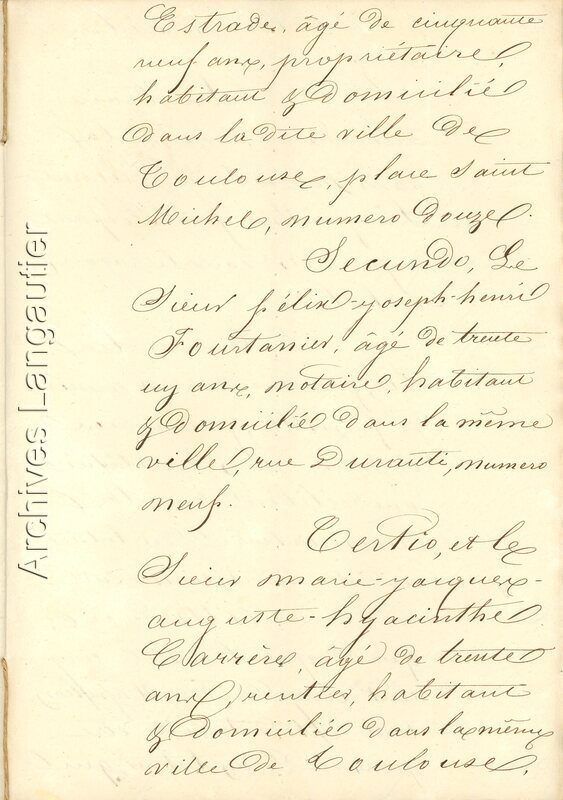 Estrade, âgé de cinquante
neuf ans, propriétaire,
habitant & domicilié
dans la dite ville de
Toulouse, place Saint
Michel, numero douze.
Secundo, Le
Sieur félix-joseph-henri
Fourtanier, âgé de trente
un ans, notaire, habitant
& domicilié dans la même
ville, rue Duranti, numero
neuf.
Tertio, et le
Sieur marie-jacques-
auguste-hyacinthe
Carrère, âgé de trente
ans, rentier, habitant
& domicilié dans la même
ville de Toulouse,
Archives Langautier